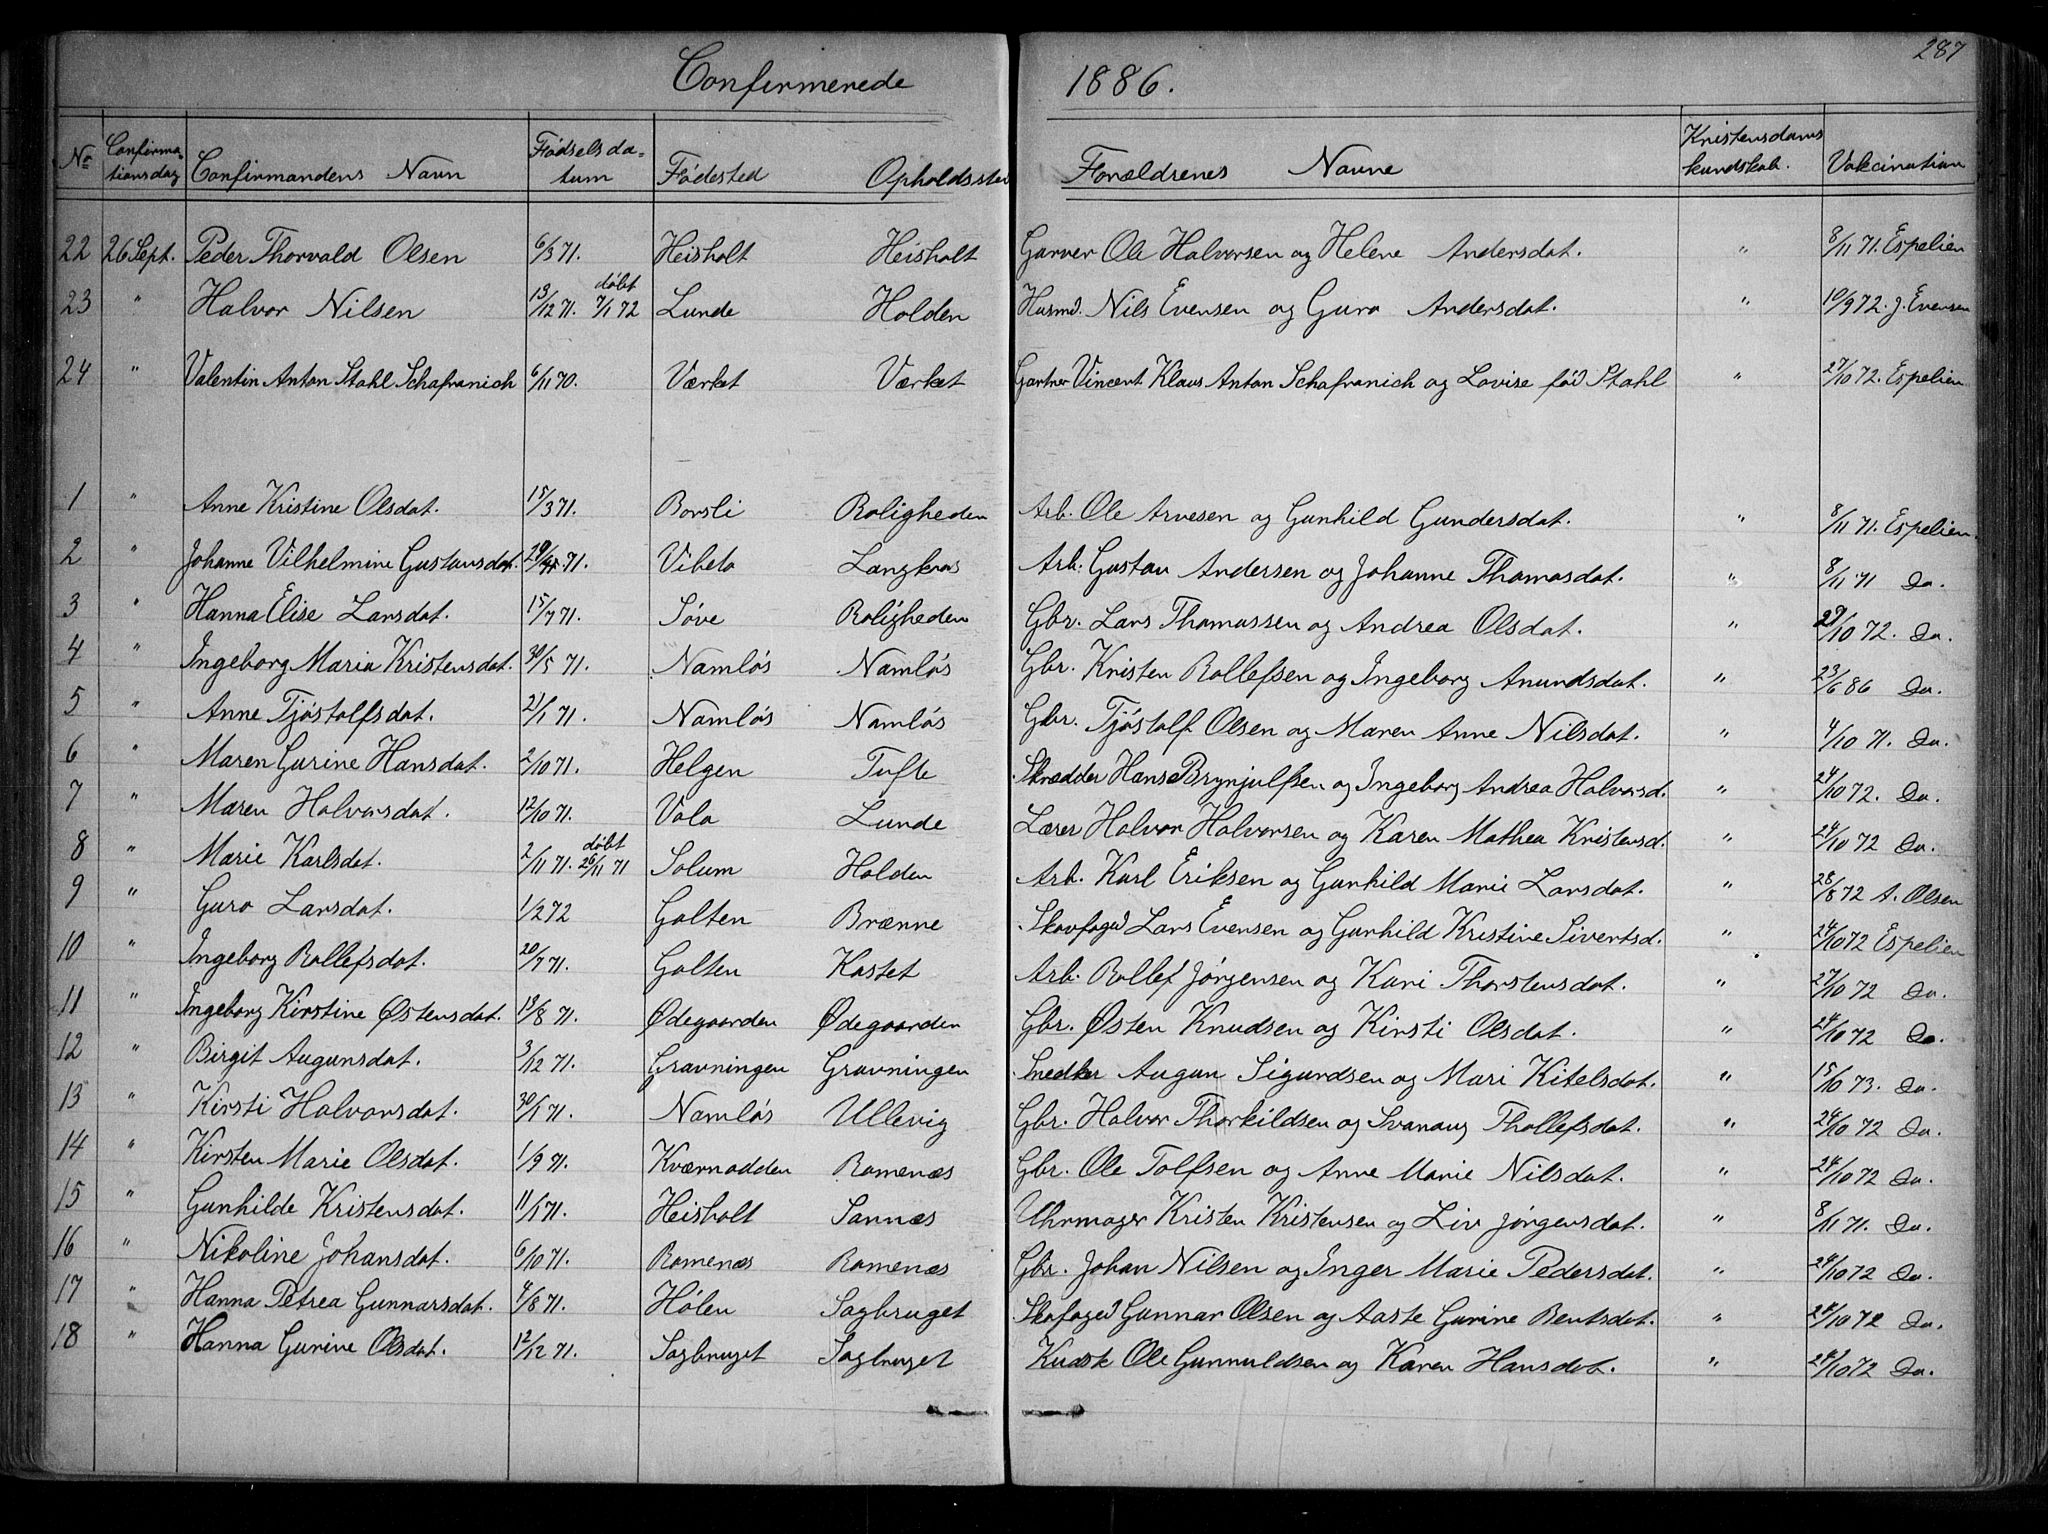 287
Confirmerede 1886.
No Confirma-tionsdag Confirmandens Navn Fødselsda-tum Fødested Opholdssted Forældrenes Navne Kristendoms kundskab. Vakcination
22 26 Sept. Peder Thorvald Olsen 6/3 71. Heisholt Heisholt Garver Ole Halvorsen og Helene Andersdat. " 8/11 71. Espelien
23 " Halvor Nilsen 13/12 71. døbt 7/1 72 Lunde Holden Husmd. Nils Evensen og Guro Andersdat. " 10/9 72. J. Evensen
24 " Valentin Anton Stahl Schafranich 6/11 70. Værket Værket Gartner Vincent Klaus Anton Schafranich og Lovise fød Stahl " 27/10 72. Espelien
1 " Anne Kristine Olsdat. 15/3 71. Borsli Roligheden Arb. Ole Arvesen og Gunhild Gundersdat. " 8/11 71. Espelien.
2 " Johanne Vilhelmine Gustavsdat. 71. Vibeto Langkaas Arb. Gustav Andersen og Johanne Thomasdat. " 8/11 71 Do.
3 " Hanna Elise Larsdat. 15/7 71. Søve Roligheden Gbr. Lars Thomassen og Andrea Olsdat. " /10 72. Do.
4 " Ingeborg Maria Kristensdat. 30/5 71. Namløs Namløs Gbr. Kristen Rollefsen og Ingeborg Anundsdat. " 23/6 86 Do.
5 " Anne Tjøstolfsdat. 21/1 71. Namløs Namløs Gbr. Tjøstolf Olsen og Maren Anne Nilsdat. " 4/10 71. Do.
6 " Maren Gurine Hansdat. 2/10 71. Helgen Tufte Skrædder Hans Brynjulfsen og Ingeborg Andrea Halvorsd. " 24/10 72. Do.
7 " Maren Halvorsdat. 12/10 71. Vola Lunde Lærer Halvor Halvorsen og Karen Mathea Kristensd. " 24/10 72 Do.
8 " Marie Karlsdat. 2/11 71. døbt 26/11 71 Solum Holden Arb. Karl Eriksen og Gunhild Marie Larsdat. " 28/8 72 A. Olsen
9 " Guro Larsdat. 1/2 72 Golten Brænne Skovfoged Lars Evensen og Gunhild Kristine Sivertsd. " 24/10 72 Espelien
10 " Ingeborg Rollefsdat. 20/7 71. Golten Kastet Arb. Rollef Jørgensen og Kari Thorstensdat. " 27/10 72 Do.
11 " Ingeborg Kirstine Østensdat. 13/8 71. Ødegaarden Ødegaarden Gbr. Østen Knudsen og Kirsti Olsdat. " 24/10 72 Do.
12 " Birgit Augunsdat. 3/12 71. Gravningen Gravningen Snedker Augun Sigurdsen og Mari Kitelsdat. " 15/10 73. Do.
13 " Kirsti Halvorsdat. 30/1 71. Namløs Ullevig Gbr. Halvor Thorkildsen og Svanaug Thollefsdat. " 24/10 72 Do.
14 " Kirsten Marie Olsdat. 1/9 71. Kværnodden Romenæs Gbr. Ole Tolfsen og Anne Marie Nilsdat. " 24/10 72 Do.
15 " Gunhilde Kristensdat. 11/1 71. Heisholt Sannæs Uhrmager Kristen Kristensen og Liv Jørgensdat. " 8/11 71. Do.
16 " Nikoline Johansdat. 6/10 71. Romenæs Romenæs Gbr. Johan Nilsen og Inger Marie Pedersdat. " 24/10 72 Do.
17 " Hanna Petrea Gunnarsdat. 4/8 71. Hølen Sagbruget Skofoged Gunnar Olsen og Aaste Gurine Bentsdat. " 24/10 72 Do.
18 " Hanna Gurine Olsdat. 12/12 71. Sagbruget Sagbruget Kudsk Ole Gunnuldsen og Karen Hansdat. " 24/10 72 Do.